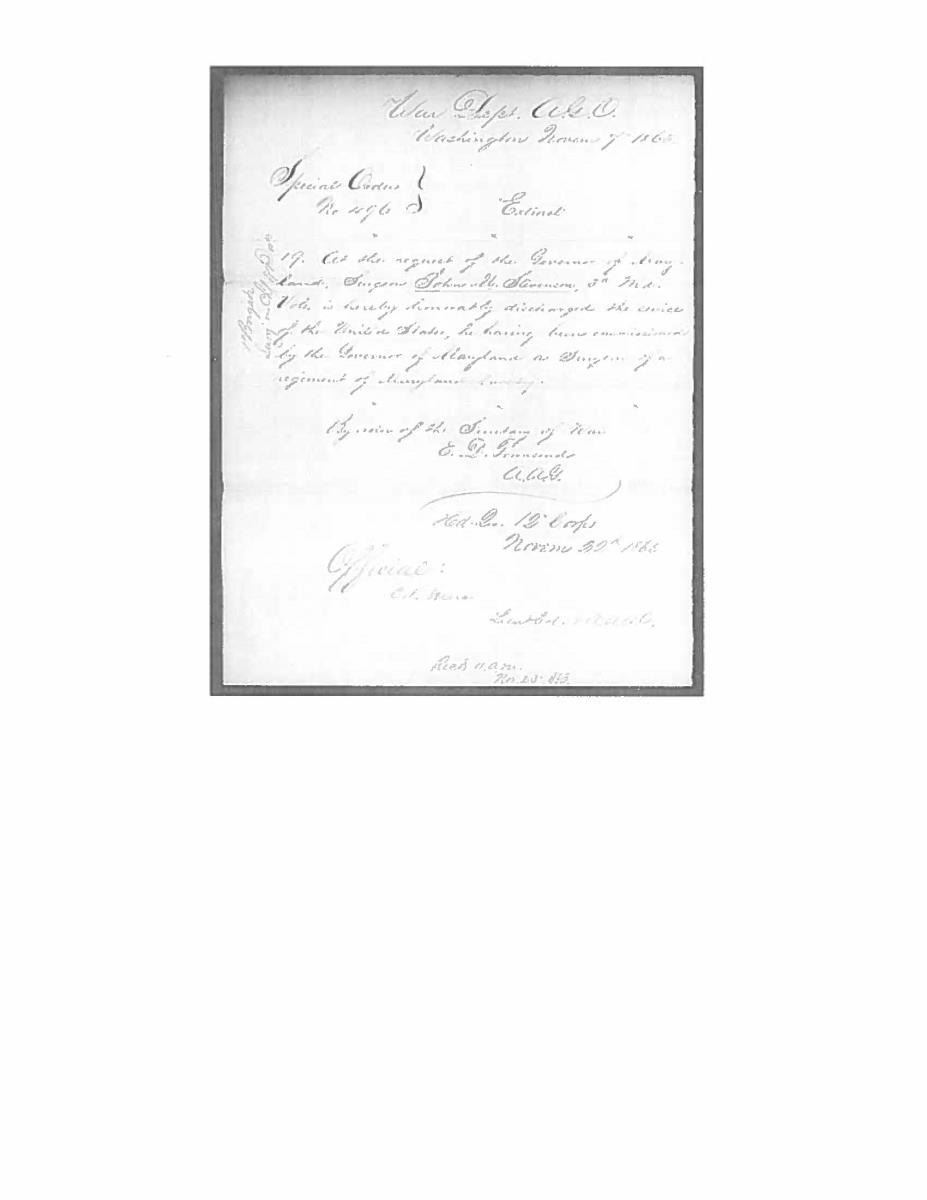 War Dept. A.G.O.
Washington Novem 7th 1863
Special Orders
No 496
"Extract"
" " "
19. At the request of the Governor of Mary-
land, Surgeon Stevenson, 3d Md.
Vols. is hereby honorably discharged the service
of the United States, he having been commissioned
by the Governor of Maryland as Surgeon of a
regiment of Maryland
" " "
By order of the Secretary of War
E. D. Townsend
A.A.G.
Hd. Qrs. 12th Corps
Novem
Official:
Lieut Col.
Recd 11 a.m.
Nov.